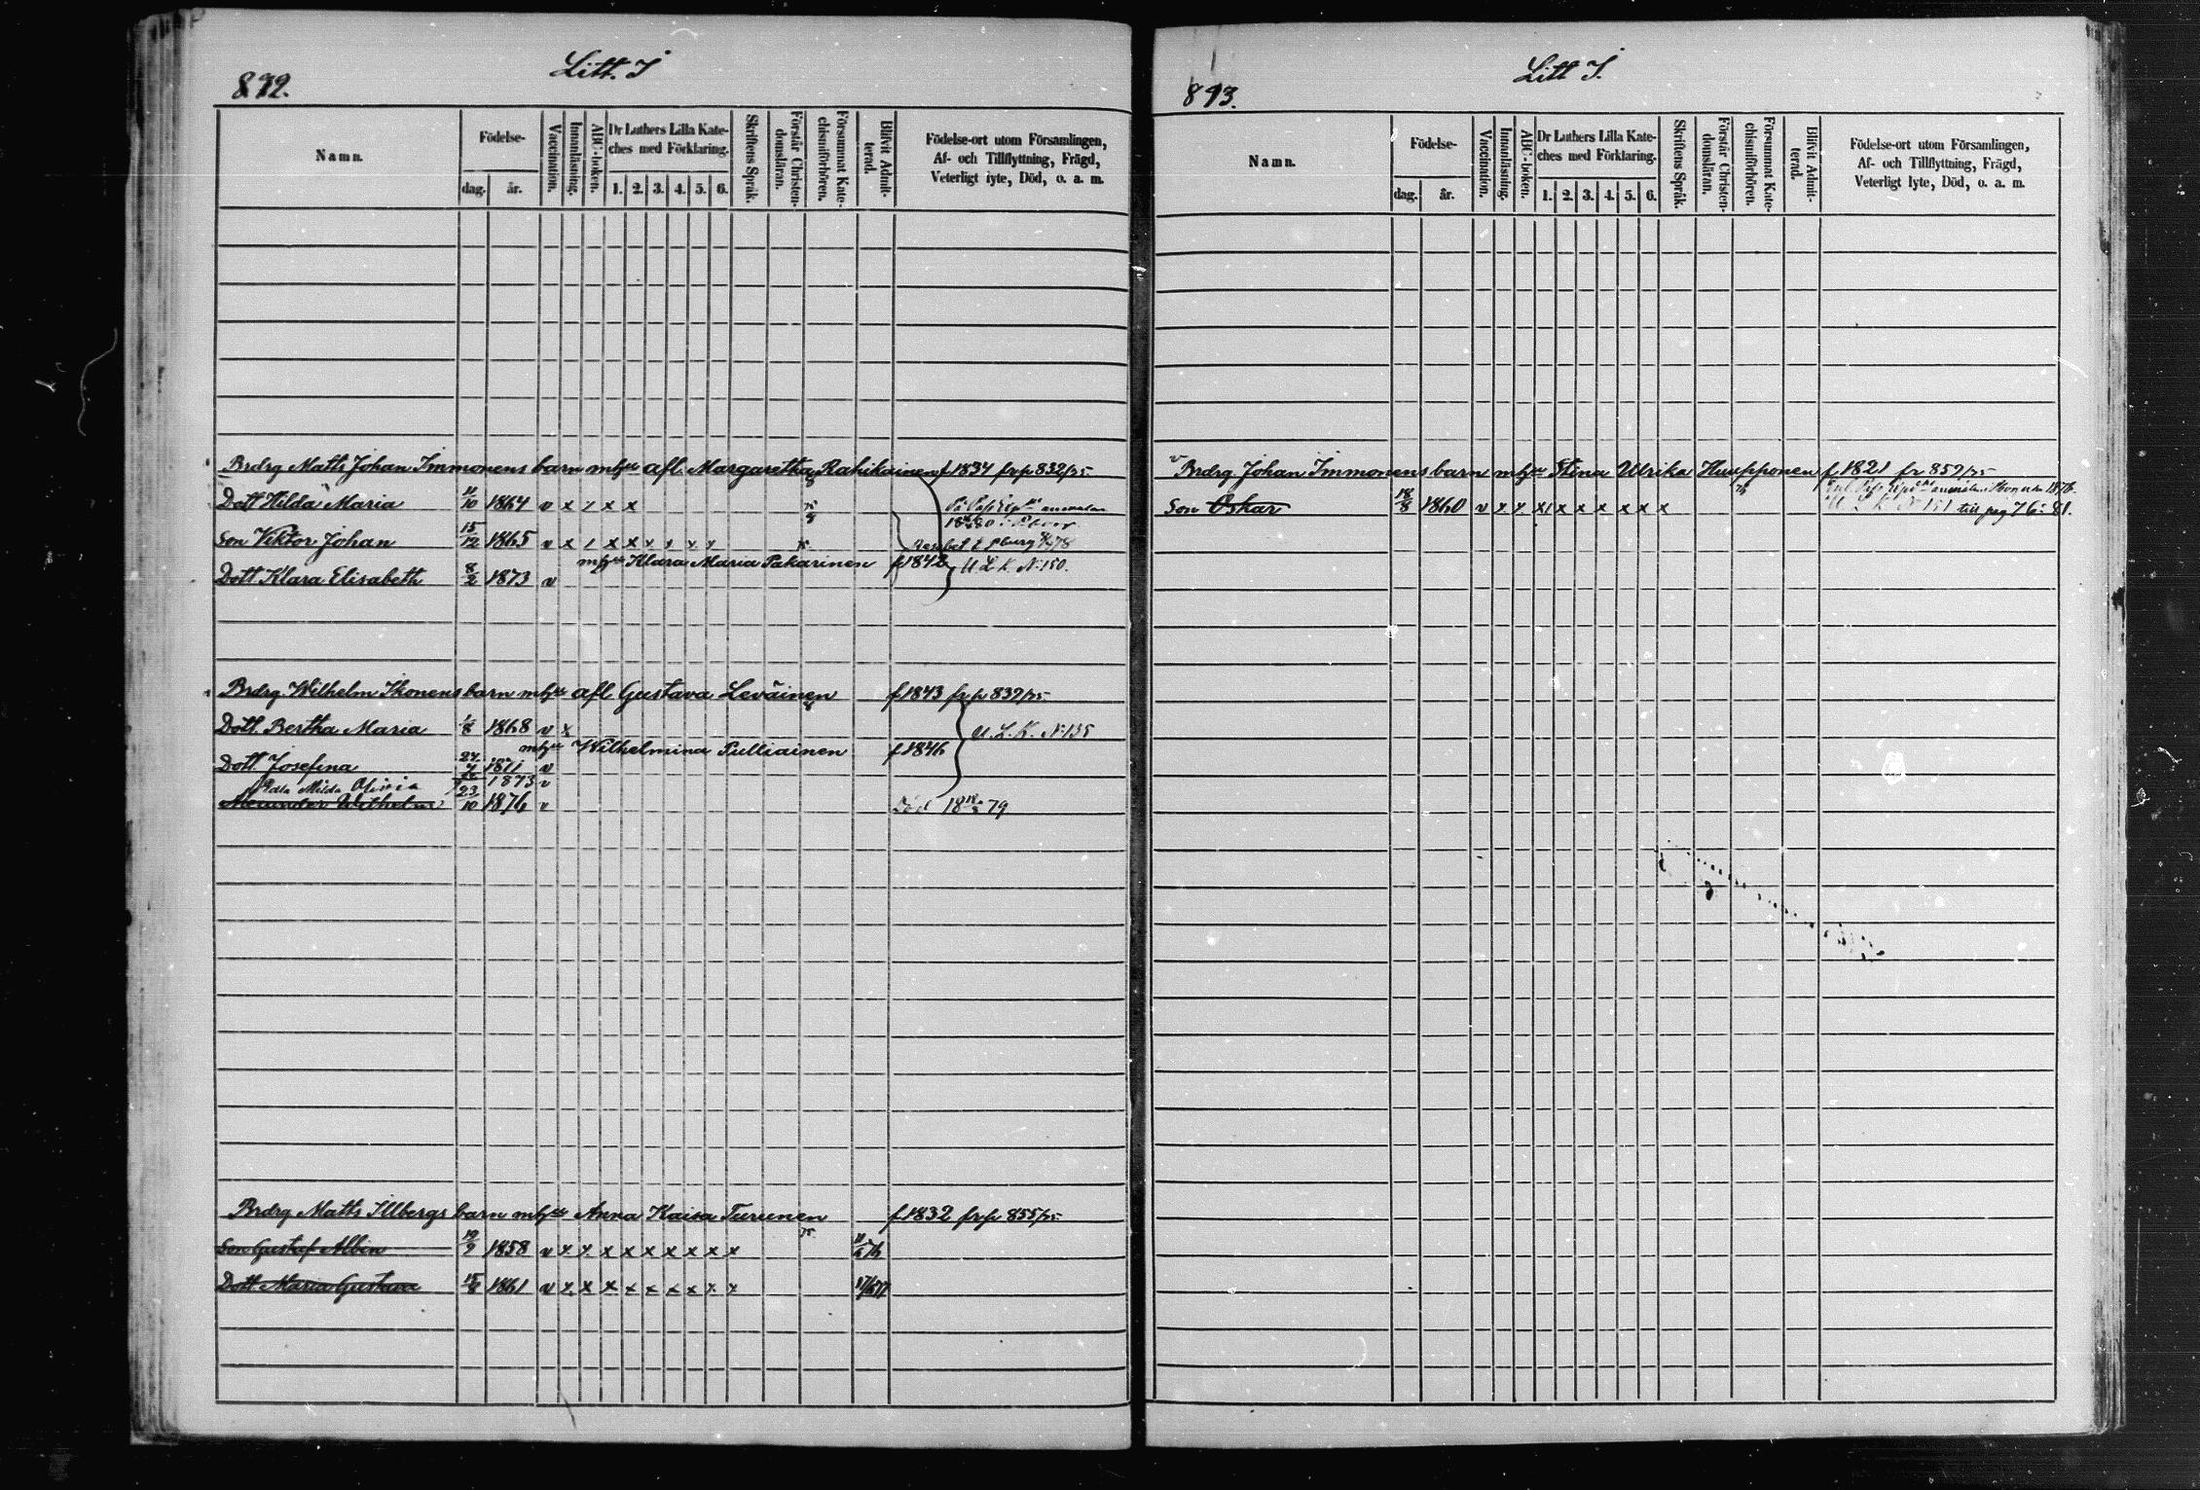 892.
Litt. I
Namn.
Födelse-
dag.
år.
Vaccination.
Innanläsning.
ABC-boken.
Dr Luthers Lilla Kate-
ches med Förklaring.
1. 2. 3. 4. 5. 6.
Skriftens Språk.
Förstår Christen-
domsläran.
Försummat Kate-
chismiförhören.
Blifvit Admit-
terad.
Födelse-ort utom Församlingen,
Af- och Tillflyttning, Frägd,
Veterligt lyte, Död, o. a. m.
Brdrg Matts Johan Immonens barn mhu afl. Margaretha Rahikainen f 1834 fr p 832/75
Dott Hilda Maria 11/10 1864 v x x x x
Son Viktor Johan 15/12 1865 v x 1 x x x x x x
mhu Klara Maria Pakarinen f 1842 U L K N:150.
Dott Klara Elisabeth 8/2 1873 v
Brdrg. Wilhelm Ikonens barn mhu afl Gustava Leväinen f 1843 fr p 832/75
Dott. Bertha Maria 1/8 1868 v x U. L. K. N:135
mhu Wilhelmina Pulliainen f 1846
Dott. Josefina 1871 v
Milda Olivia 1873 v
Wilhelm 23/10 1876 v Död 79
Brdrg Matts Illbergs barn mhu Anna Kaisa Turunen f 1832 fr p 855/75
Son Gustaf Albin 19/9 1858 v x x x x x x x x x
Dott Maria Gustava 15/8 1861 v x x x x x x x x x
893.
Litt I.
Namn.
Födelse-
dag.
år.
Vaccination.
Innanläsning.
ABC-boken.
Dr Luthers Lilla Kate-
ches med Förklaring.
1. 2. 3. 4. 5. 6.
Skriftens Språk.
Förstår Christen-
domsläran.
Försummat Kate-
chismiförhören.
Blifvit Admit-
terad.
Födelse-ort utom Församlingen,
Af- och Tillflyttning, Frägd,
Veterligt lyte, Död, o. a. m.
Brdrg Johan Immonens barn mhu Stina Ulrika Huupponen f 1821 fr 859/75
Son Oskar 18/8 1860 v x x x x x x x x x
U L K N 151 till pag 76: 81.